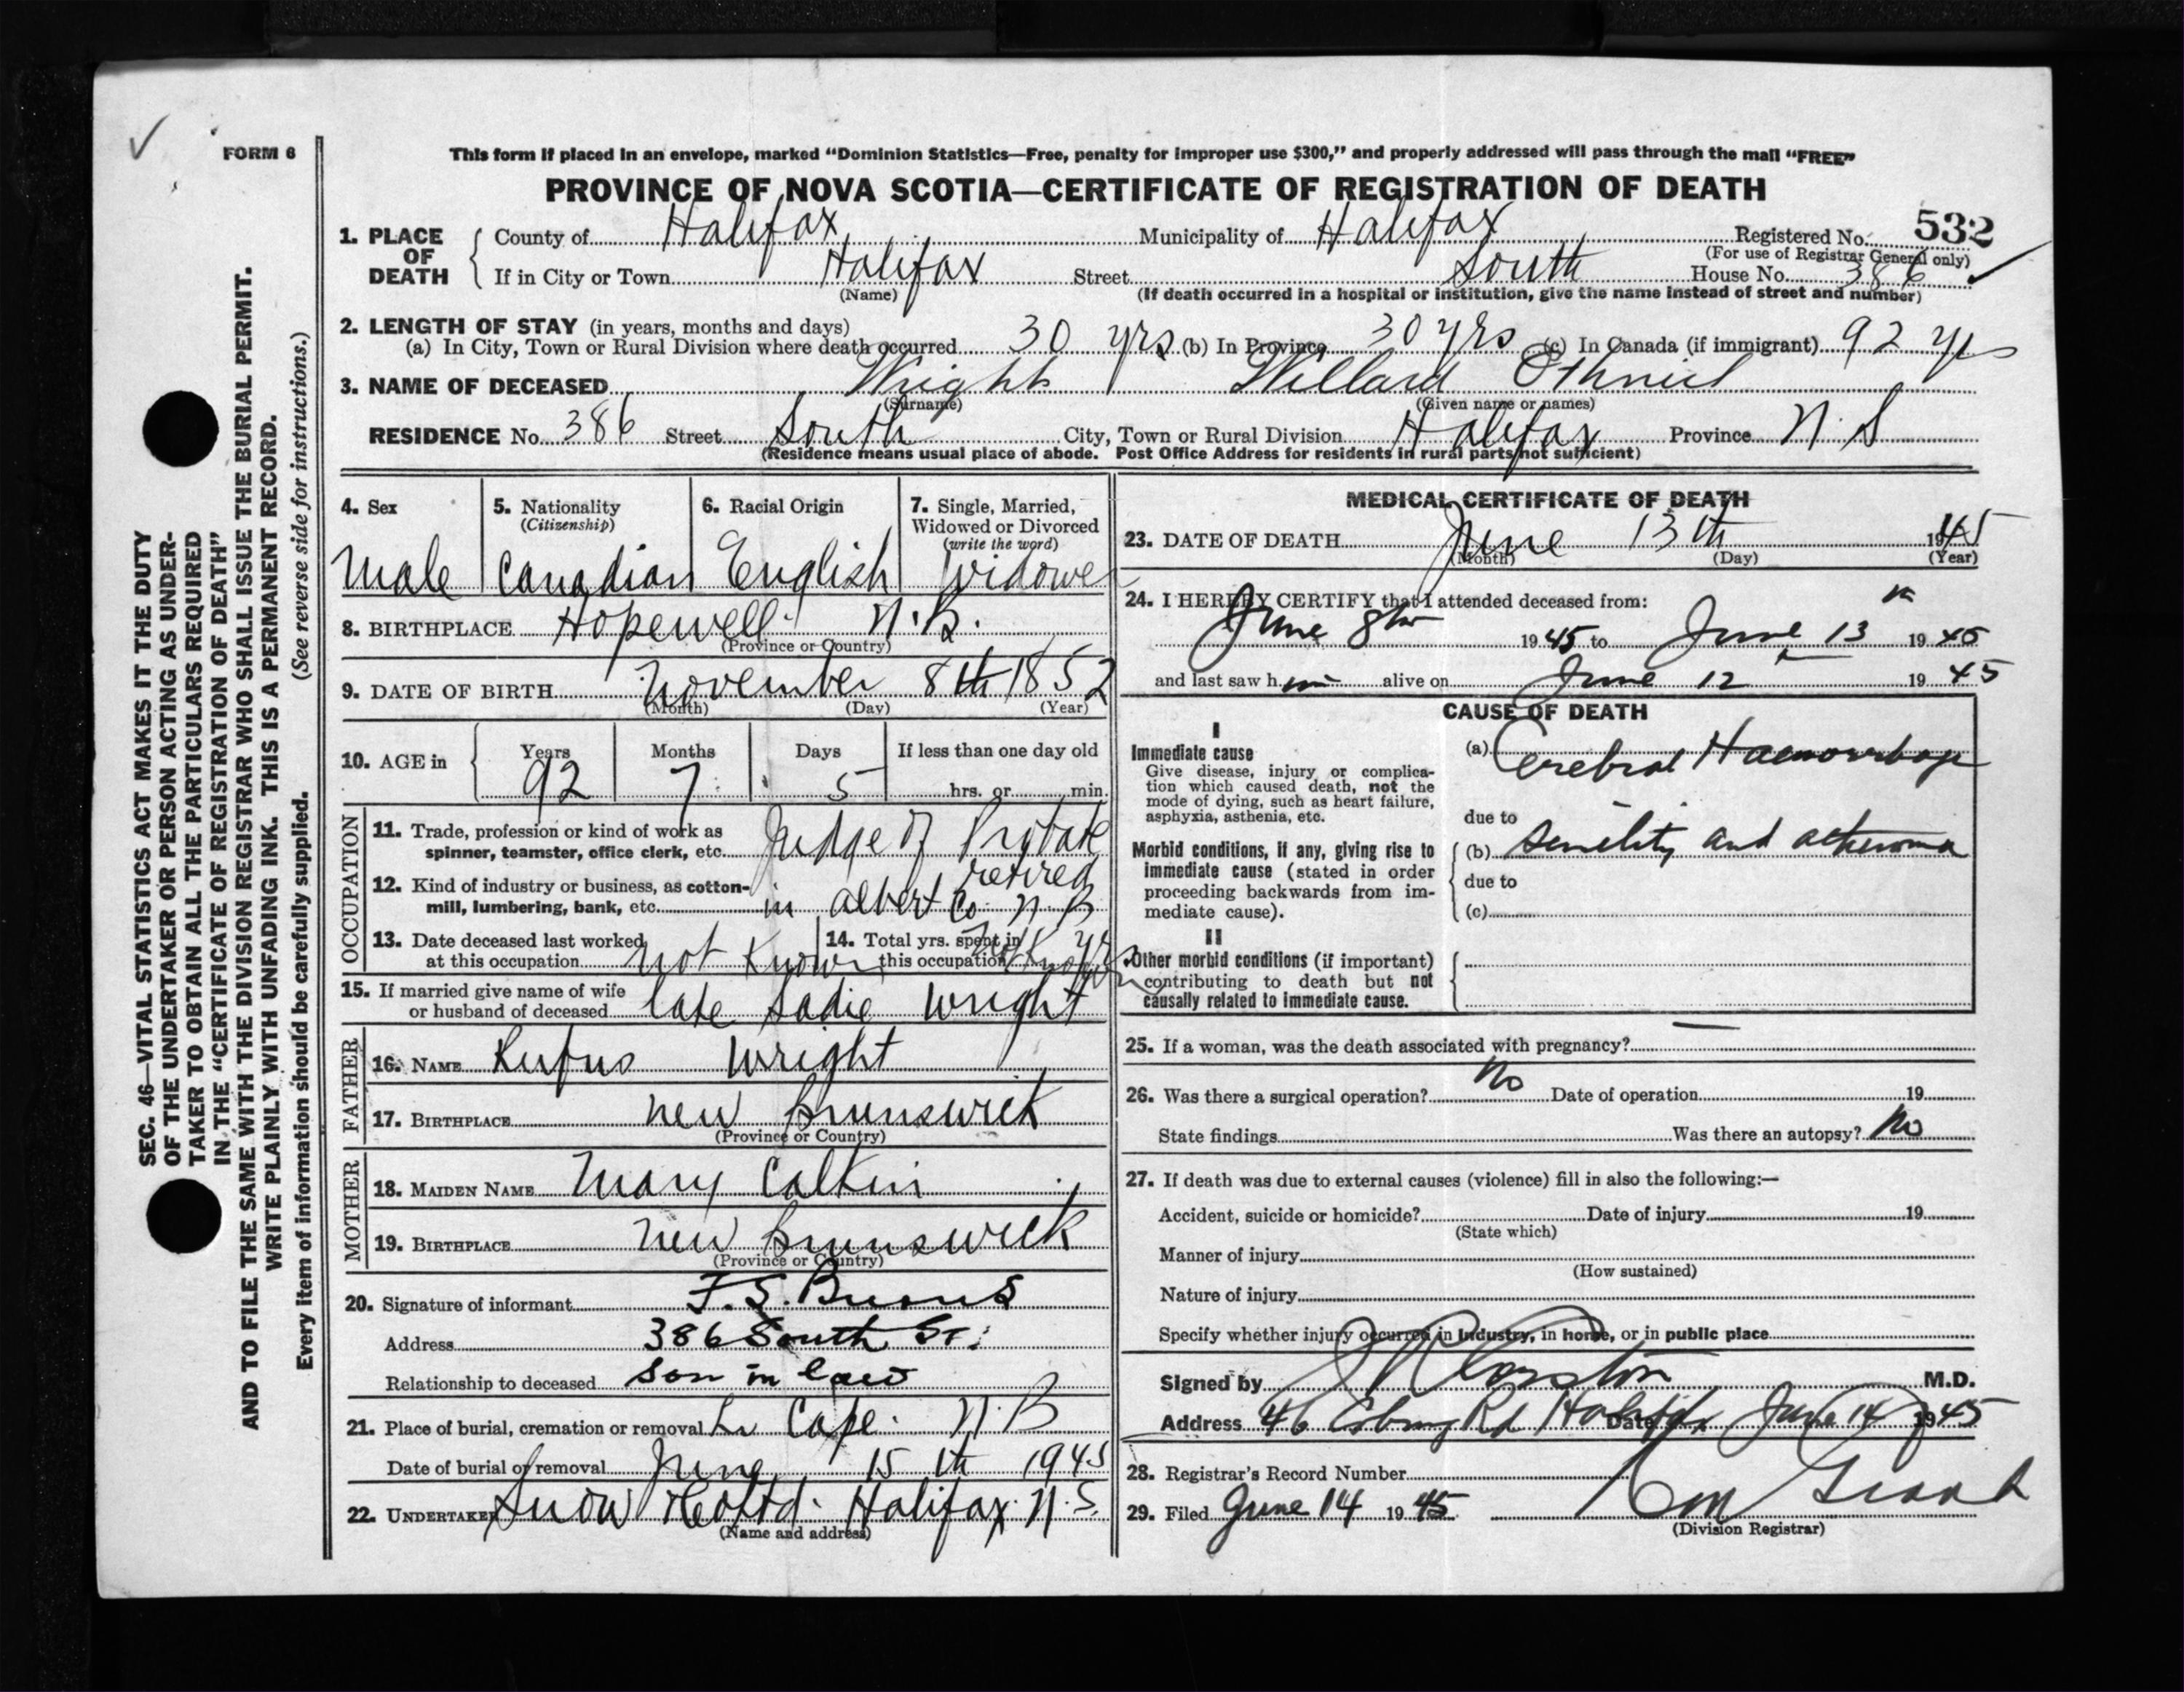 FORM 6
This form if placed in an envelope, marked "Dominion Statistics—Free, penalty for improper use $300," and properly addressed will pass through the mail "FREE"
PROVINCE OF NOVA SCOTIA—CERTIFICATE OF REGISTRATION OF DEATH
532
1. PLACE OF DEATH County of Halifax Municipality of Halifax Registered No.
(For use of Registrar General only)
If in City or Town Halifax Street South House No. 386
(Name) (If death occurred in a hospital or institution, give the name instead of street and number)
2. LENGTH OF STAY (in years, months and days)
(a) In City, Town or Rural Division where death occurred 30 yrs (b) In Province 30 yrs (c) In Canada (if immigrant) 92 yrs
3. NAME OF DECEASED Wright Willard Othniel
(Surname) (Given name or names)
RESIDENCE No. 386 Street South City, Town or Rural Division Halifax Province N.S
(Residence means usual place of abode. Post Office Address for residents in rural parts not sufficient)
4. Sex
Male
5. Nationality
(Citizenship)
Canadian
6. Racial Origin
English
7. Single, Married,
Widowed or Divorced
(write the word)
Widower
8. BIRTHPLACE Hopewell N.B.
(Province or Country)
9. DATE OF BIRTH November 8th 1852
(Month) (Day) (Year)
10. AGE in Years Months Days If less than one day old
92 7 5 hrs. or min.
OCCUPATION
11. Trade, profession or kind of work as
spinner, teamster, office clerk, etc. Judge of Probate
retired
12. Kind of industry or business, as cotton-
mill, lumbering, bank, etc. in Albert Co. N.B
13. Date deceased last worked
at this occupation not Known
14. Total yrs. spent in
this occupation not Known yrs.
15. If married give name of wife
or husband of deceased late Sadie Wright
FATHER
16. NAME Rufus Wright
17. BIRTHPLACE New Brunswick
(Province or Country)
MOTHER
18. MAIDEN NAME Mary Calkin
19. BIRTHPLACE New Brunswick
(Province or Country)
20. Signature of informant F. S. Burns
Address 386 South St.
Relationship to deceased Son in law
21. Place of burial, cremation or removal Cape N.B
Date of burial or removal June 15th 1945
22. UNDERTAKER Snow & Co Ltd. Halifax N.S.
(Name and address)
MEDICAL CERTIFICATE OF DEATH
23. DATE OF DEATH June 13th 1945
(Month) (Day) (Year)
24. I HEREBY CERTIFY that I attended deceased from:
June 8th 1945 to June 13th 1945
and last saw him alive on June 12 1945
CAUSE OF DEATH
I
Immediate cause
Give disease, injury or complica-
tion which caused death, not the
mode of dying, such as heart failure,
asphyxia, asthenia, etc.
(a) Cerebral Haemorrhage
due to
Morbid conditions, if any, giving rise to
immediate cause (stated in order
proceeding backwards from im-
mediate cause).
(b) Senility and atheroma
due to
(c)
II
Other morbid conditions (if important)
contributing to death but not
causally related to immediate cause.
25. If a woman, was the death associated with pregnancy? —
26. Was there a surgical operation? No Date of operation 19
State findings Was there an autopsy? No
27. If death was due to external causes (violence) fill in also the following:—
Accident, suicide or homicide? Date of injury 19
(State which)
Manner of injury
(How sustained)
Nature of injury
Specify whether injury occurred in industry, in home, or in public place
Signed by M.D.
Address 46 Rd Halifax Date June 14 1945
28. Registrar's Record Number
29. Filed June 14 1945
(Division Registrar)
SEC. 46—VITAL STATISTICS ACT MAKES IT THE DUTY
OF THE UNDERTAKER OR PERSON ACTING AS UNDER-
TAKER TO OBTAIN ALL THE PARTICULARS REQUIRED
IN THE "CERTIFICATE OF REGISTRATION OF DEATH"
AND TO FILE THE SAME WITH THE DIVISION REGISTRAR WHO SHALL ISSUE THE BURIAL PERMIT.
WRITE PLAINLY WITH UNFADING INK. THIS IS A PERMANENT RECORD.
Every item of information should be carefully supplied. (See reverse side for instructions.)